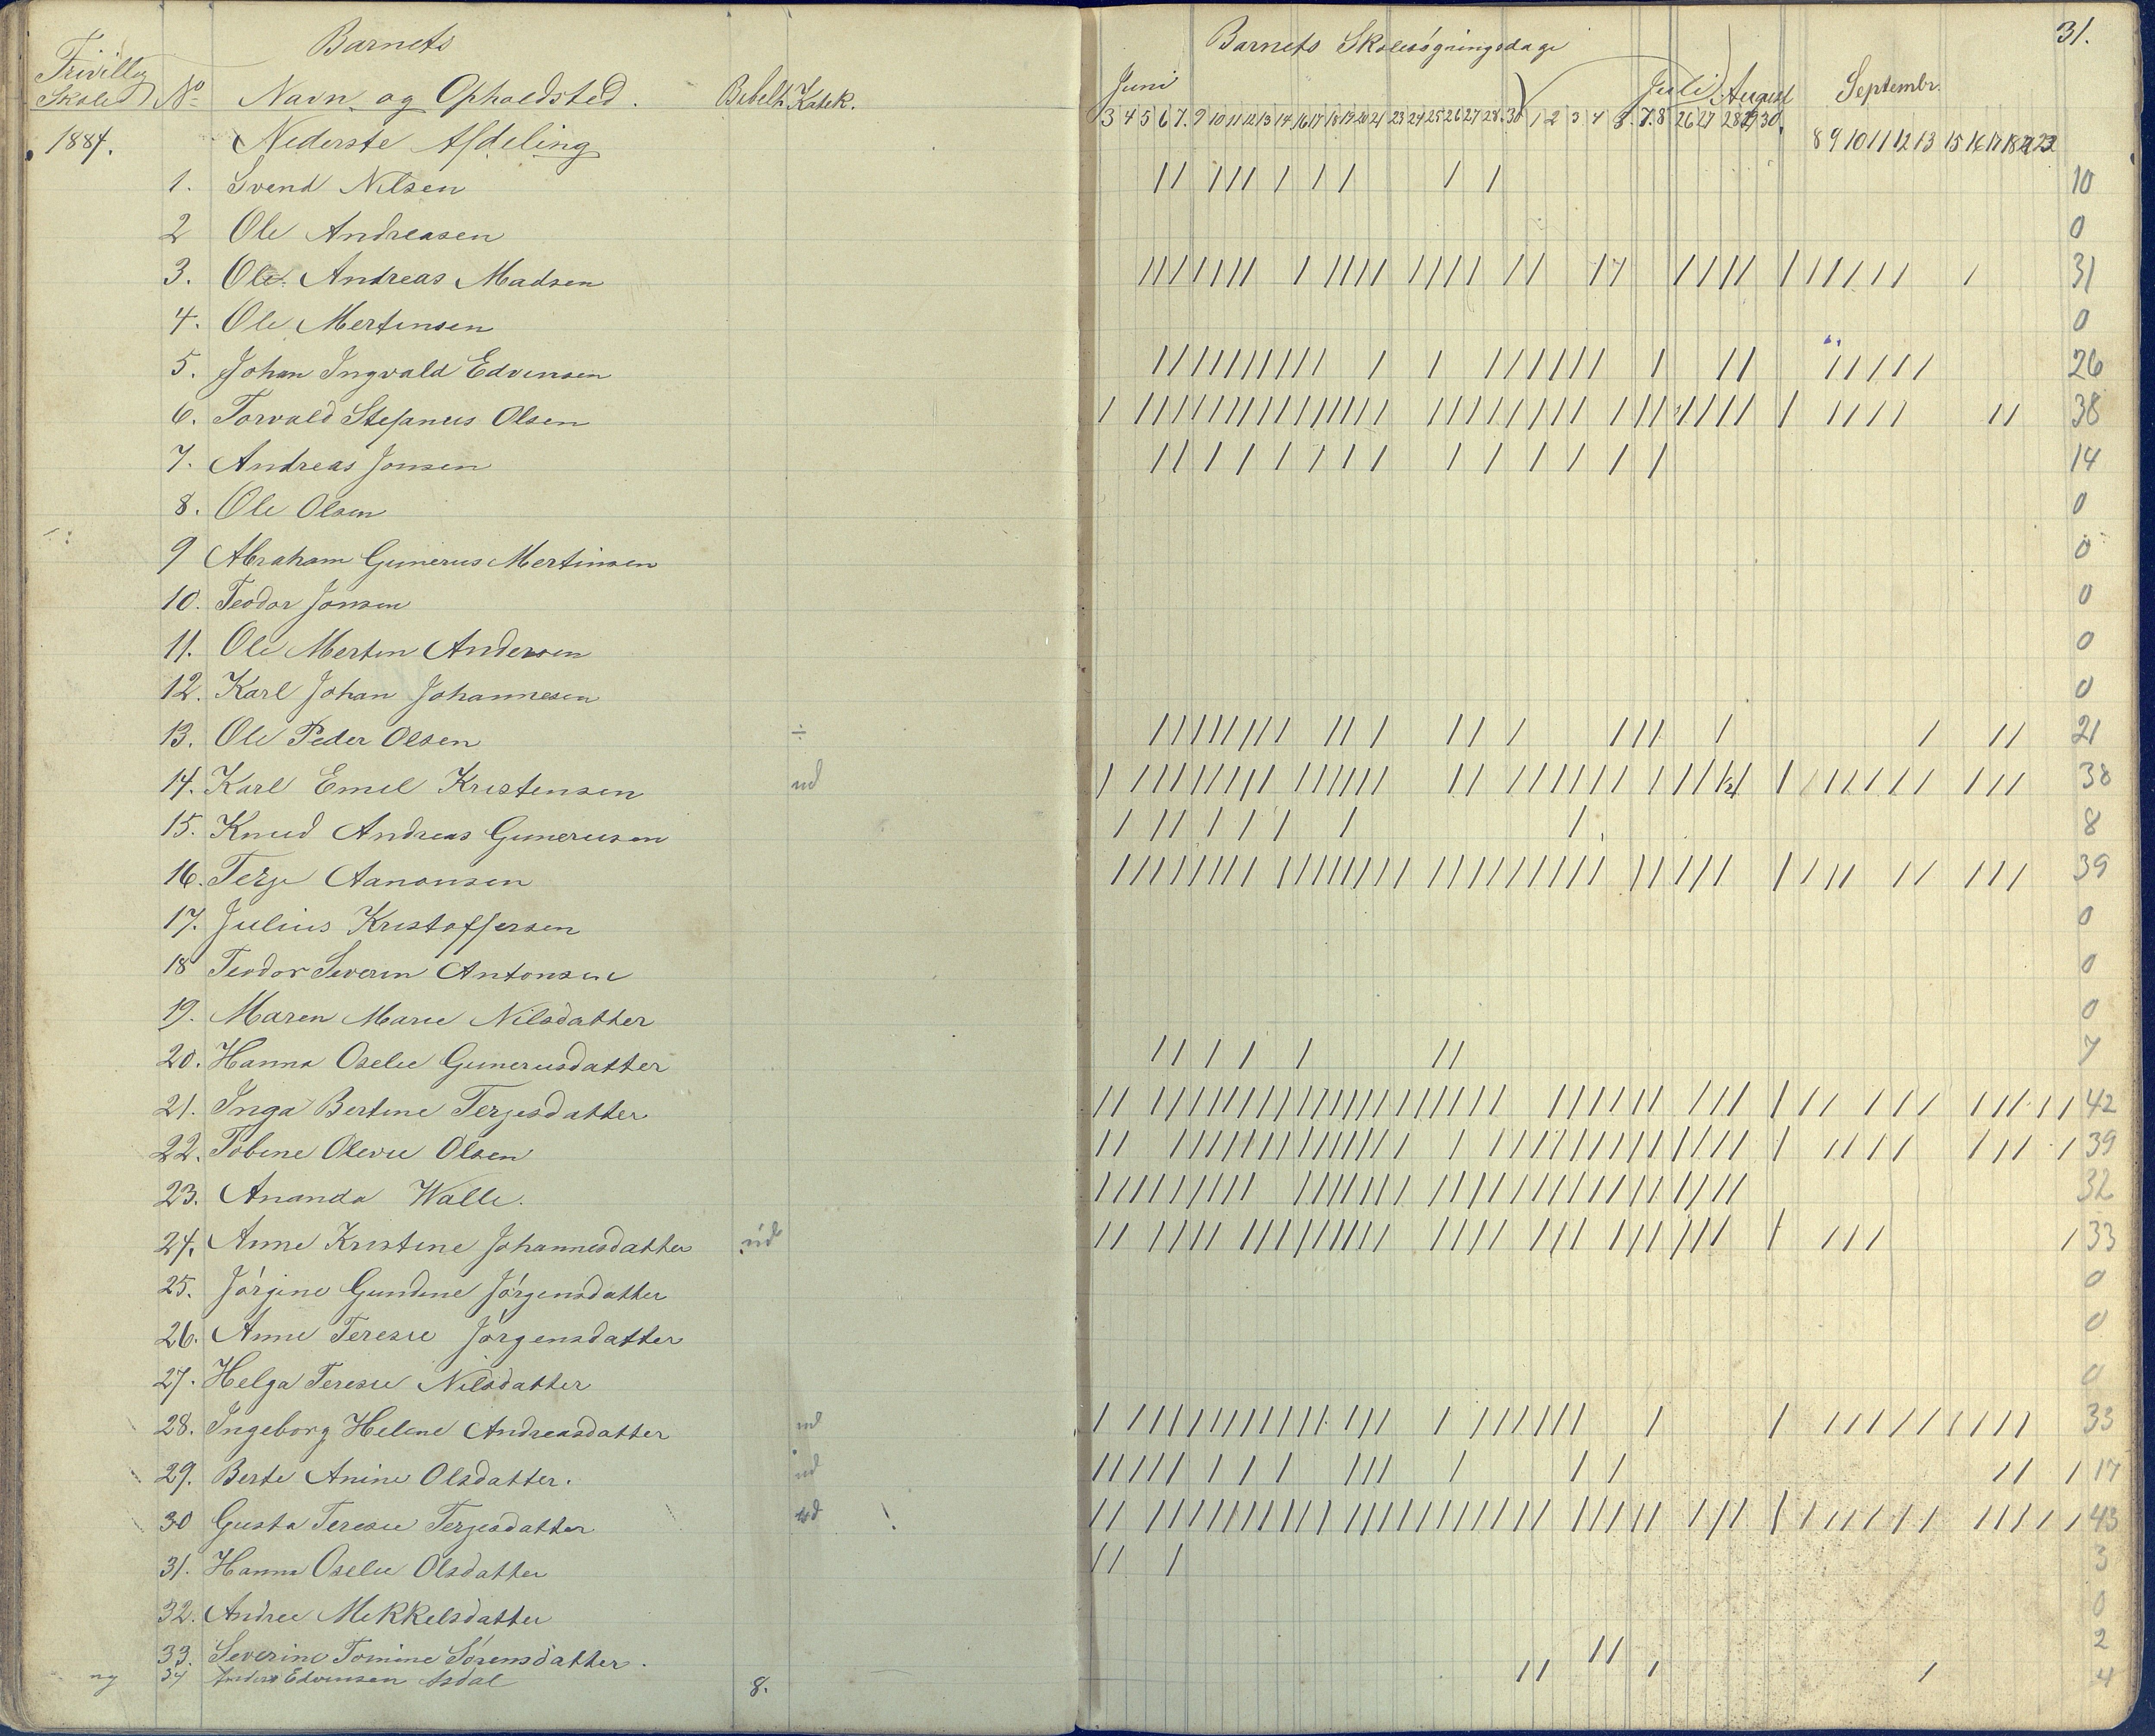 Barnets
Barnets Skolesøgningsdage
31.
Frivillig
Skole
No
Navn og Opholdsted.
Bibelh
Katek.
Juni
Juli
August
Septembr.
3 4 5 6 7. 9 10 11 12 13 14 16 17 18 19 20 21 23 24 25 26 27 28. 30 1 2 3 4 5. 7. 8 26 27 28 29 30.
8 9 10 11 12 13 15 16 17 18 22 23
1884.
Nederste Afdeling
1. Svend Nilsen 10
2 Ole Andreasen 0
3. Ole Andreas Madsen 31
4. Ole Mertinsen 0
5. Johan Ingvald Edvinsen 26
6. Torvald Stefanus Olsen 38
7. Andreas Jonsen 14
8. Ole Olsen 0
9 Abraham Gunerus Mertinsen 0
10. Teodor Jonsen 0
11. Ole Mertin Andersen 0
12. Karl Johan Johannesen 0
13. Ole Peder Olsen ÷ 21
14. Karl Emil Kristensen ud 38
15. Knud Andreas Gunerusen 8
16. Terje Aanonsen 39
17. Julius Kristoffersen 0
18 Teodor Severin Antonsen 0
19. Maren Marie Nilsdatter 0
20. Hanna Oselie Gunerusdatter 7
21. Inga Bertine Terjesdatter 42
22. Tobine Olevie Olsen 39
23. Ananda Walle. 32
24. Anne Kristine Johannesdatter ud 33
25. Jørgine Gundine Jørgensdatter 0
26. Anne Teresie Jørgensdatter 0
27. Helga Teresie Nilsdatter 0
28. Ingeborg Helene Andreasdatter ud 33
29. Berte Anine Olsdatter. ud 17
30 Gusta Teresie Terjesdatter ud 43
31. Hanna Oselie Olsdatter 3
32. Andree Mekkelsdatter 0
33. Severine Tomine Sørensdatter. 2
ny 34 Anders Edvinsen Asdal 8. 4